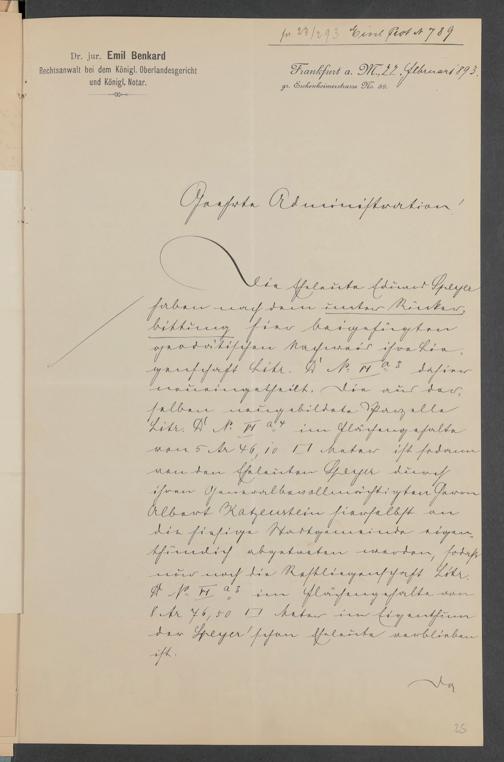 pr 23/2 93 Einl. Prot. № 789
Dr. jur. Emil Benkard
Rechtsanwalt bei dem Königl. Oberlandesgericht
und Königl. Notar.
Frankfurt a. M., 22. Februar 1893.
gr. Eschenheimerstrasse No. 39.
Geehrte Administration!
Die Eheleute Eduard Speyer
haben nach dem unter Rücker,
bittung hier beigefügten
geodätischen Nachweis ihre Lie,
genschaft Litr. № VI a 3 dahier
neueingetheilt. Die aus der,
selben neugebildete Parzelle
Litr. № VI a 4 im Flächengehalte
von 5 Ar 46,10 □ Meter ist sodann
von den Eheleuten Speyer durch
ihren Generalbevollmächtigten Herrn
Albert Katzenstein hierselbst an
die hiesige Stadtgemeinde eigen,
thümlich abgetreten worden, sodaß
nur noch die Restliegenschaft Litr.
№ VI a 3 im Flächengehalte von
8 Ar 76,50 □ Meter im Eigenthum
der Speyer'schen Eheleute verblieben
ist.
Da
25